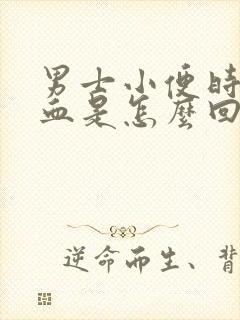 男士小便时
血是怎麼回
逆命而生、背